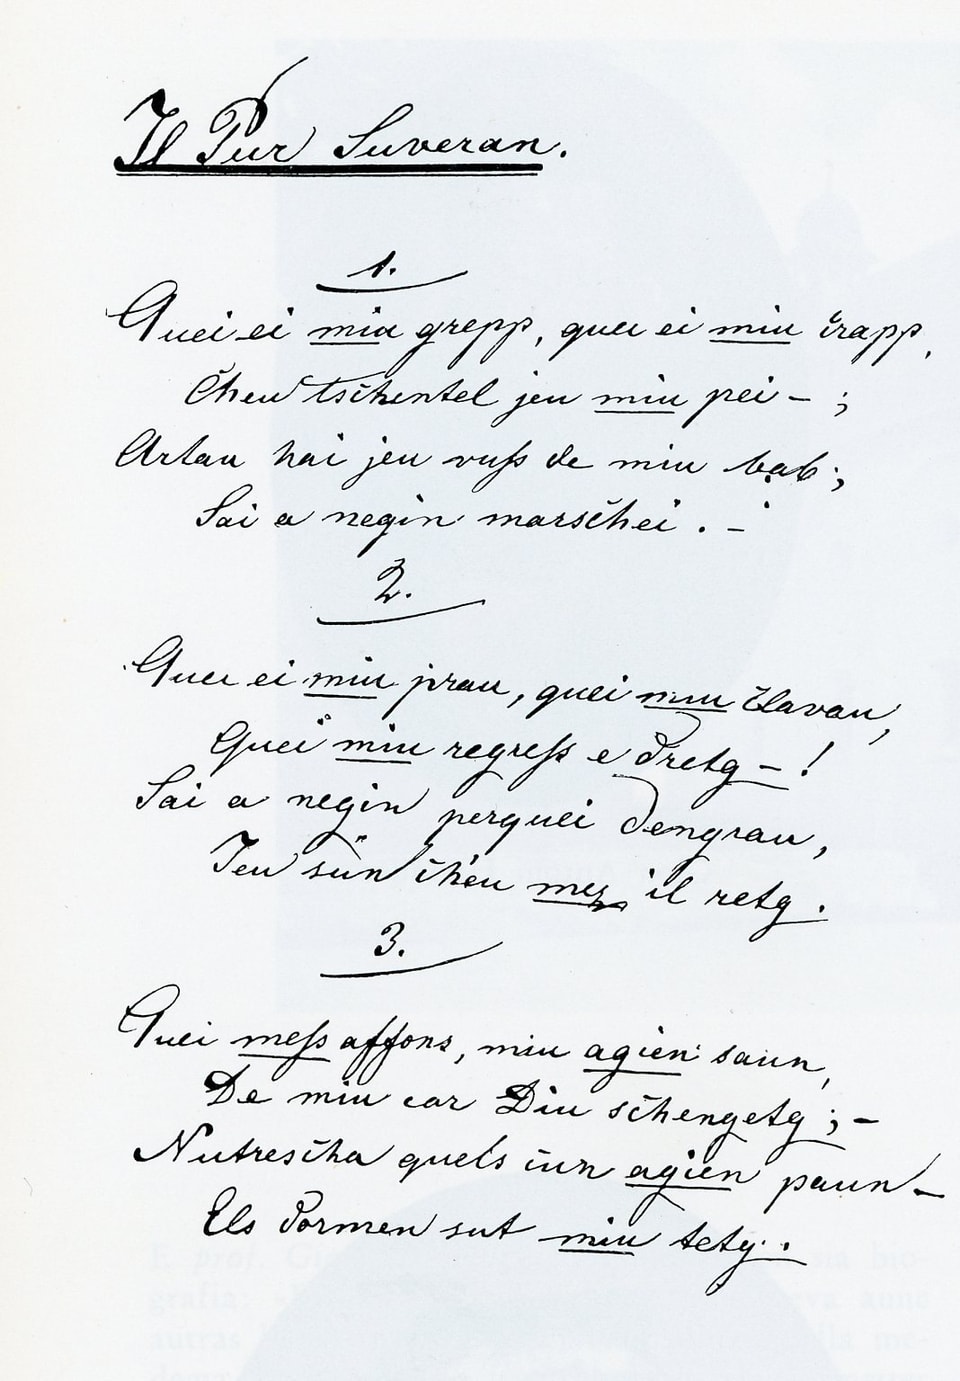 Il Pur Suveran.
1.
Quei ei miu grepp, quei ei miu crapp,
Cheu tschentel jeu miu pei – ;
Artau hai jeu vuss de miu bab;
Sai a negin marschei. –
2.
Quei ei miu prau, quei miu clavau,
Quei miu regress e dretg – !
Sai a negin perquei dengrau,
Jeu sun cheu mez il retg.
3.
Quei mess affons, miu agien saun,
De miu car Diu schengetg; –
Nutrescha quels cun agien paun –
Els dormen sut miu tetg.
prof.
sia bio-
grafia:
autras